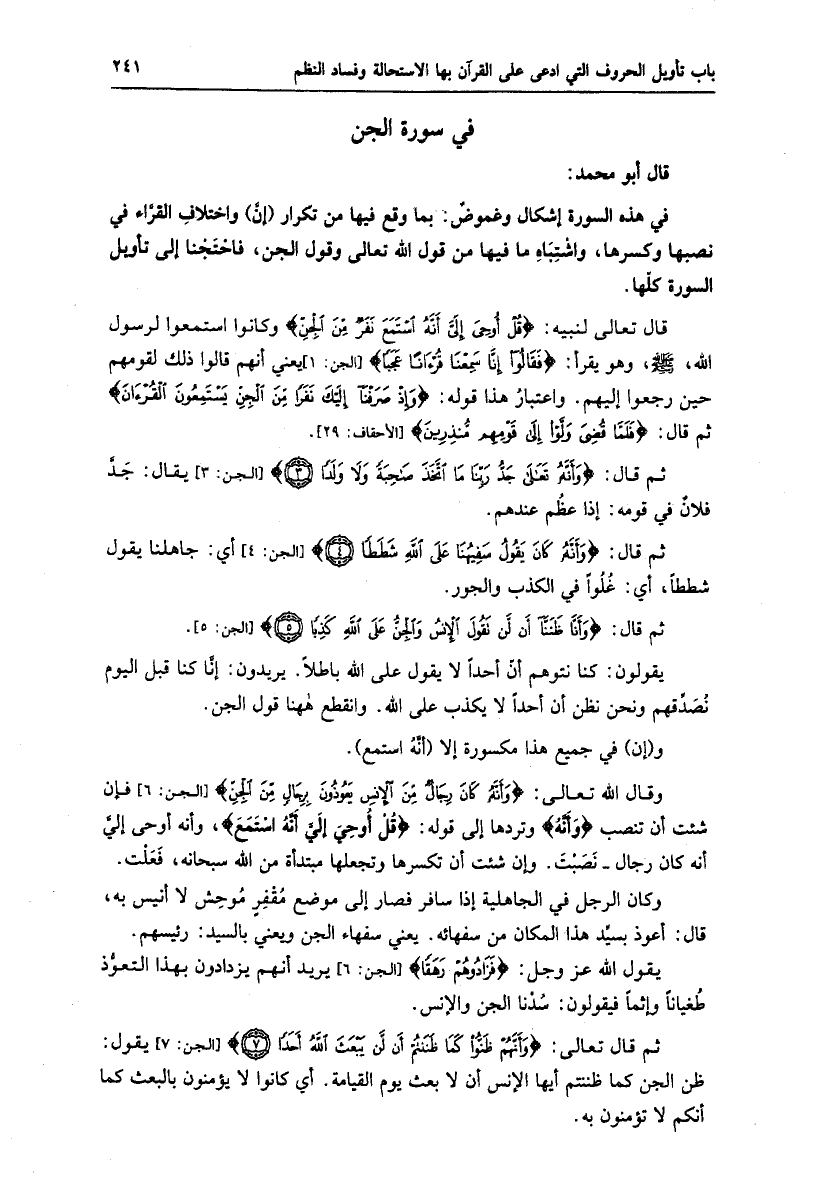 باب تأويل الحروف التي ادعى على القرآن بها الاستحالة وفساد النظم ٢٤١
في سورة الجن
قال أبو محمد:
في هذه السورة إشكال وغموضٌ: بما وقع فيها من تكرار (إنَّ) واختلافِ القرَّاء في
نصبها وكسرها، واشْتِبَاهِ ما فيها من قول الله تعالى وقول الجن، فاحْتَجْنا إلى تأويل
السورة كلّها.
قال تعالى لنبيه: ﴿قُلْ أُوحِيَ إِلَيَّ أَنَّهُ ٱسْتَمَعَ نَفَرٌ مِّنَ ٱلْجِنِّ﴾ وكانوا استمعوا لرسول
الله، ﷺ، وهو يقرأ: ﴿فَقَالُوٓا۟ إِنَّا سَمِعْنَا قُرْءَانًا عَجَبًا﴾ [الجن: ١]يعني أنهم قالوا ذلك لقومهم
حين رجعوا إليهم. واعتبارُ هذا قوله: ﴿وَإِذْ صَرَفْنَآ إِلَيْكَ نَفَرًا مِّنَ ٱلْجِنِّ يَسْتَمِعُونَ ٱلْقُرْءَانَ﴾
ثم قال: ﴿فَلَمَّا قُضِيَ وَلَّوْا۟ إِلَىٰ قَوْمِهِم مُّنذِرِينَ﴾ [الأحقاف: ٢٩].
ثم قال: ﴿وَأَنَّهُۥ تَعَٰلَىٰ جَدُّ رَبِّنَا مَا ٱتَّخَذَ صَٰحِبَةً وَلَا وَلَدًا ٣﴾ [الجن: ٣] يقال: جَدَّ
فلانٌ في قومه: إذا عظُم عندهم.
ثم قال: ﴿وَأَنَّهُۥ كَانَ يَقُولُ سَفِيهُنَا عَلَى ٱللَّهِ شَطَطًا ٤﴾ [الجن: ٤] أي: جاهلنا يقول
شططاً، أي: غُلُواً في الكذب والجور.
ثم قال: ﴿وَأَنَّا ظَنَنَّآ أَن لَّن نَقُولَ ٱلْإِنسُ وَٱلْجِنُّ عَلَى ٱللَّهِ كَذِبًا ٥﴾ [الجن: ٥].
يقولون: كنا نتوهم أنّ أحداً لا يقول على الله باطلاً. يريدون: إنَّا كنا قبل اليوم
نُصَدِّقهم ونحن نظن أن أحداً لا يكذب على الله. وانقطع هٰهنا قول الجن.
و(إن) في جميع هذا مكسورة إلا (أنَّهُ استمع).
وقال الله تعالى: ﴿وَأَنَّهُۥ كَانَ رِجَالٌ مِّنَ ٱلْإِنسِ يَعُوذُونَ بِرِجَالٍ مِّنَ ٱلْجِنِّ﴾ [الجن: ٦] فإن
شئت أن تنصب ﴿وَأَنَّهُ﴾ وتردها إلى قوله: ﴿قُلْ أُوحِيَ إِلَيَّ أَنَّهُ اسْتَمَعَ﴾، وأنه أوحى إليَّ
أنه كان رجال ـ نَصَبْتَ. وإن شئت أن تكسرها وتجعلها مبتدأة من الله سبحانه، فَعَلْت.
وكان الرجل في الجاهلية إذا سافر فصار إلى موضع مُقْفِرٍ مُوحِش لا أنيس به،
قال: أعوذ بسيِّد هذا المكان من سفهائه. يعني سفهاء الجن ويعني بالسيد: رئيسهم.
يقول الله عز وجل: ﴿فَزَادُوهُمْ رَهَقًا﴾ [الجن: ٦] يريد أنهم يزدادون بهذا التعوُّذ
طُغياناً وإثماً فيقولون: سُدْنا الجن والإنس.
ثم قال تعالى: ﴿وَأَنَّهُمْ ظَنُّوا۟ كَمَا ظَنَنتُمْ أَن لَّن يَبْعَثَ ٱللَّهُ أَحَدًا ٧﴾ [الجن: ٧] يقول:
ظن الجن كما ظننتم أيها الإنس أن لا بعث يوم القيامة. أي كانوا لا يؤمنون بالبعث كما
أنكم لا تؤمنون به.